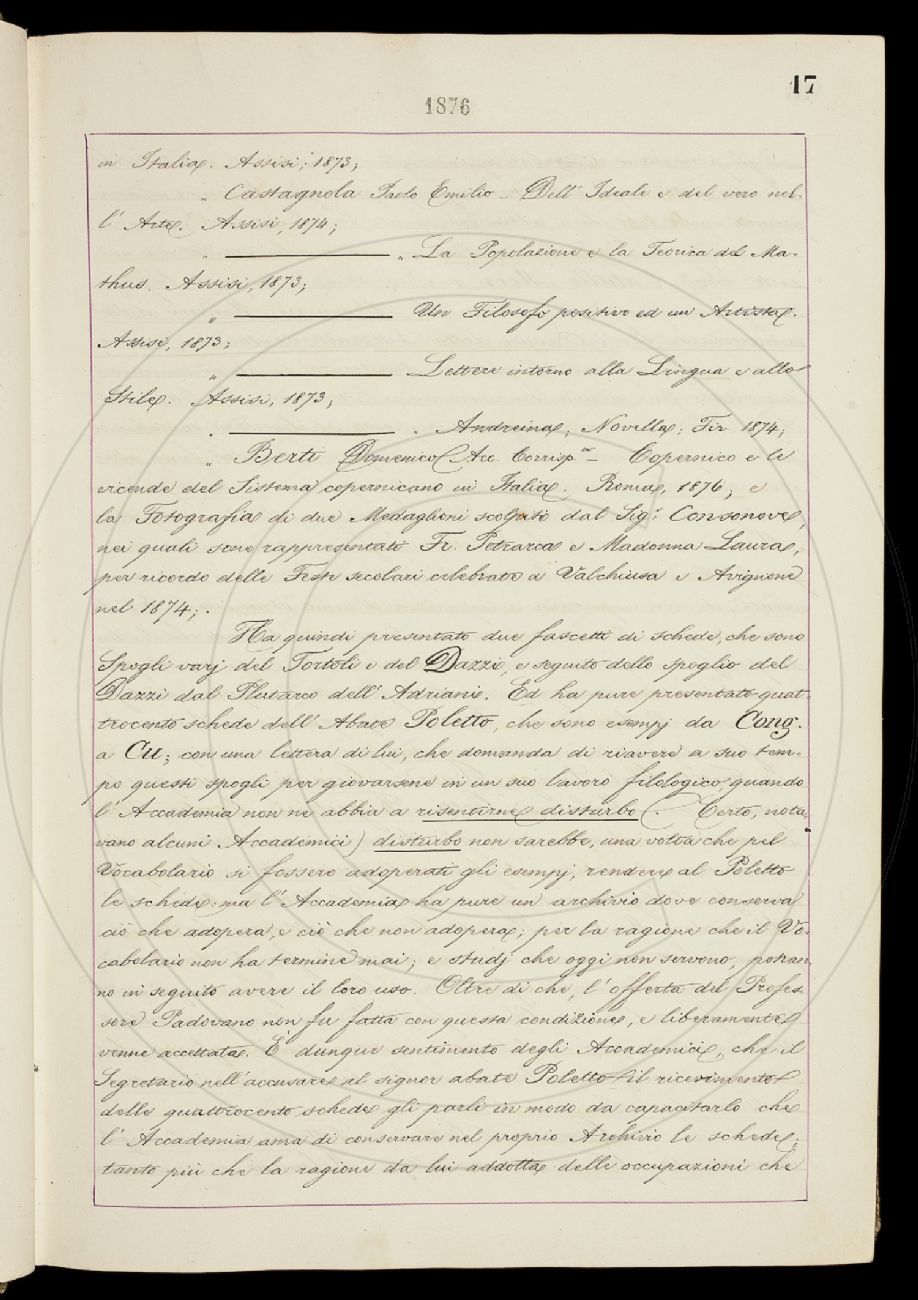 17
1876
in Italia. Assisi, 1873;
„ Castagnola Paolo Emilio – Dell' Ideale e del vero nel-
l' Arte. Assisi, 1874;
„ ——— „ La Popolazione e la Teorica del Ma-
thus. Assisi, 1873;
„ ——— Un Filosofo positivo ed un Artista.
Assisi, 1873;
„ ——— Lettere intorno alla Lingua e allo
Stile. Assisi, 1873;
„ ——— „ Andreina, Novella; Fir 1874;
„ Berti Domenico Acc. Corrisp.te – Copernico e le
vicende del Sistema copernicano in Italia. Roma, 1876; e
la Fotografia di due Medaglioni scolpiti dal Sig.r Consonove,
nei quali sono rappresentati Fr. Petrarca e Madonna Laura,
per ricordo delle Feste secolari celebrate a Valchiusa e Avignone
nel 1874;.
Ha quindi presentato due fascetti di schede, che sono
Spogli varj del Tortoli e del Dazzi, e seguito dello spoglio del
Dazzi dal Plutarco dell' Adriani. Ed ha pure presentato quat
trocento schede dell' Abate Poletto, che sono esempj da Cong.
a Cu; con una lettera di lui, che domanda di riavere a suo tem-
po questi spogli per giovarsene in un suo lavoro filologico, quando
l' Accademia non ne abbia a risentirne disturbo (. Certo, nota-
vano alcuni Accademici) disturbo non sarebbe, una volta che pel
Vocabolario si fossero adoperati gli esempj, rendere al Poletto
le schede: ma l' Accademia ha pure un archivio dove conserva
ciò che adopera, e ciò che non adopera; per la ragione che il Vo-
cabolario non ha termine mai; e studj che oggi non servono, potran-
no in seguito avere il loro uso. Oltre di che, l' offerta del Profes-
sore Padovano non fu fatta con questa condizione, e liberamente
venne accettata. È dunque sentimento degli Accademici, che il
Segretario nell' accusare al signor abate Poletto il ricevimento
delle quattrocento schede gli parli in modo da capacitarlo che
l' Accademia ama di conservare nel proprio Archivio le schede;
tanto più che la ragione da lui addotta delle occupazioni che